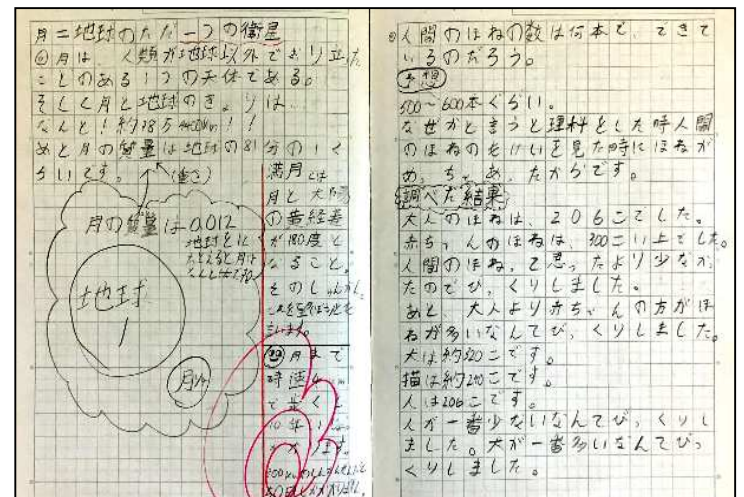 月=地球のただ一つの衛星
◎月は、人類が地球以外でおり立った
ことのある1つの天体である。
そして月と地球のきょりは…
なんと!約38万4400km!!
あと月の質量は地球の81分の1ぐ
らいです。
(重さ)
月の質量は0.012
地球を1に
たとえると月は
なんしょって70
地球
1
月
満月とは
月と太陽
の黄経差
が180度と
なること。
そのしゅんかん、
これを望(ぼう)とも
言います。
月まで
時速4km
で歩くと
10年い
かかります。
人間のほねの数は何本で、できて
いるのだろう。
予想
500~600本ぐらい。
なぜかと言うと理科をした時人間
のほねのもけいを見た時にほねが
めっちゃあったからです。
調べた結果
大人のほねは、206こでした。
赤ちゃんのほねは、300こい上でした。
人間のほね、て思ったより少なかっ
たのでびっくりしました。
あと、大人より赤ちゃんの方がほ
ねが多いなんてびっくりしました。
犬は約320こです。
描は約240こです。
人は206こです。
人が一番少ないなんてびっくりし
ました。犬が一番多いなんてびっ
くりしました。